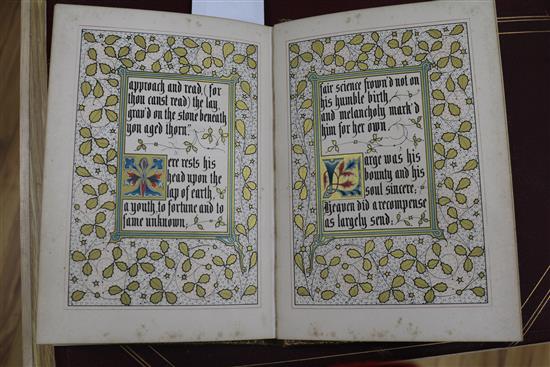 approach and read, (for
thou canst read) the lay,
grav'd on the stone beneath
yon aged thorn."
Here rests his
head upon the
lap of earth,
a youth, to fortune and to
fame unknown,
fair science frown'd not on
his humble birth
and melancholy mark'd
him for her own.
Large was his
bounty and his
soul sincere,
Heaven did a recompense
as largely send: